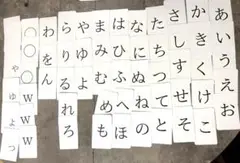 あいうえお
かきくけこ
さしすせそ
たちつてと
なにぬねの
はひふへほ
まみむめも
やゆよ
らりるれろ
わをん
○○WWW
ゃゅょっ